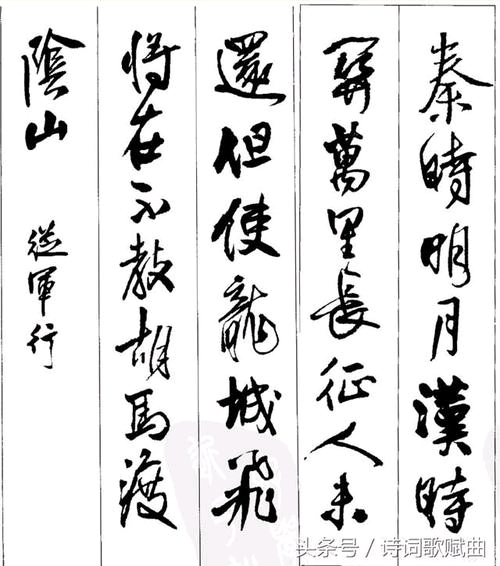 秦時明月漢時
關萬里長征人未
還但使龍城飛
將在不教胡馬渡
陰山
從軍行
头条号/诗词歌赋曲